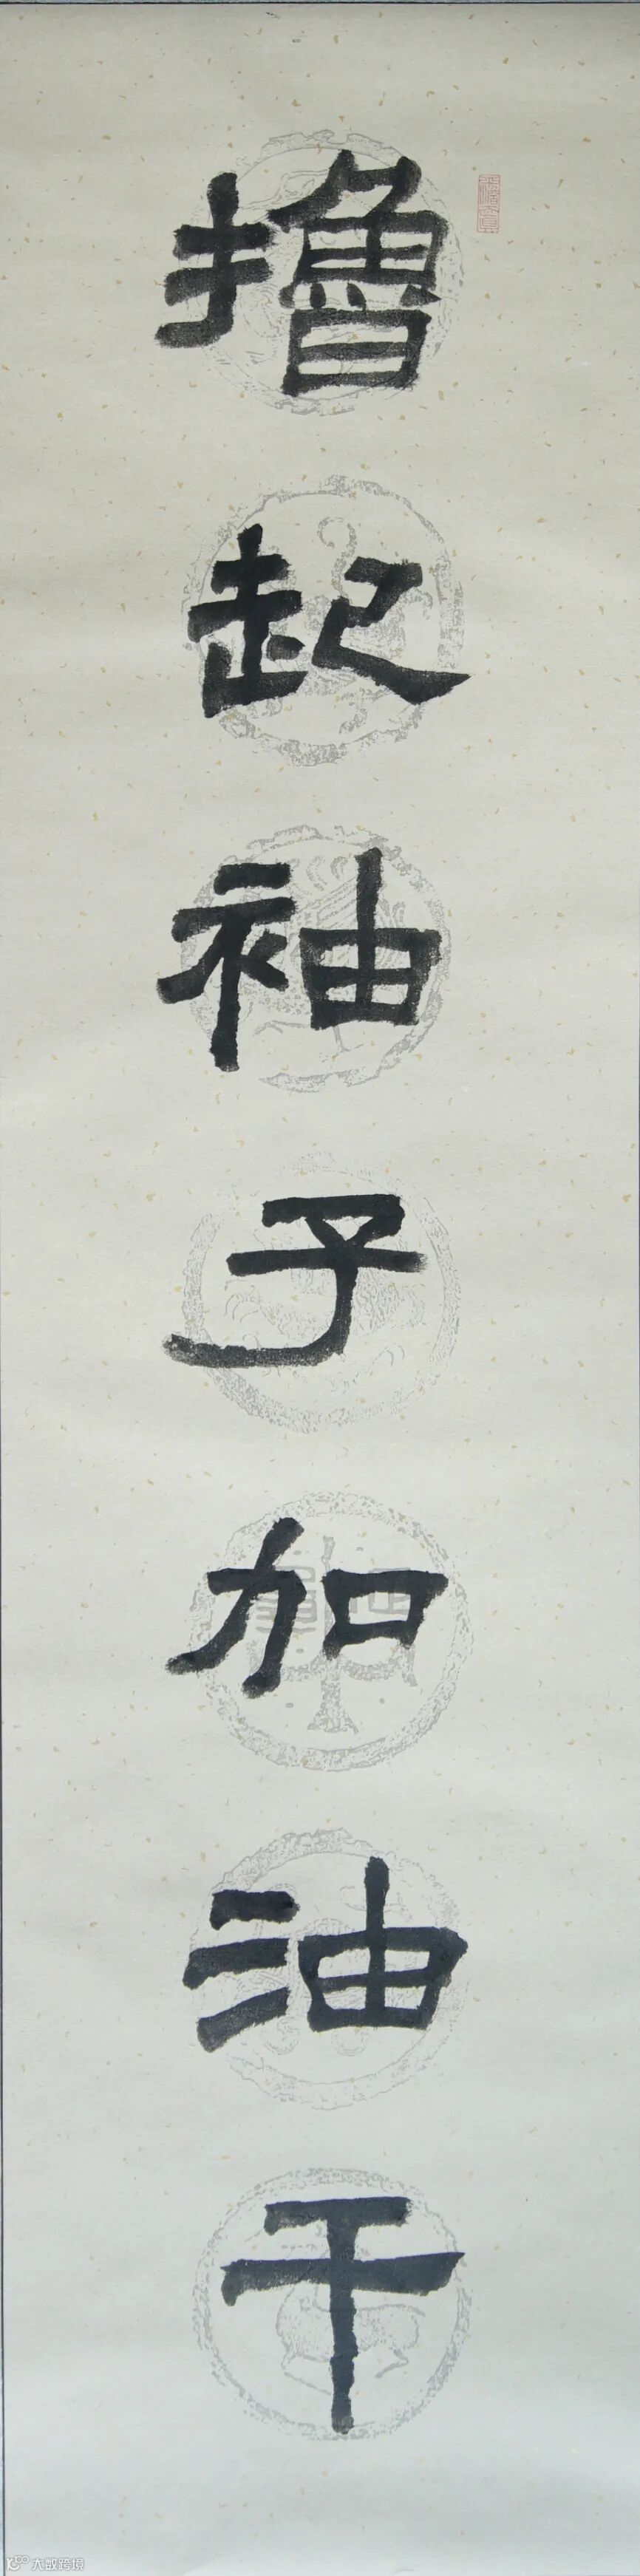 撸起袖子加油干
大蚁跨境